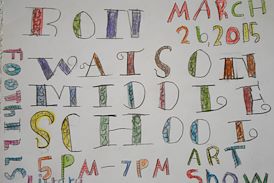 RON
MARCH
26 2015
WATSON
MIDDLE
SCHOOL
5PM-7PM
ART
SHOW
FOOTHILLS